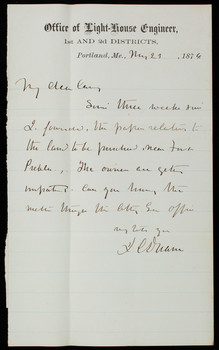 Office of Light-House Engineer,
1st AND 2d DISTRICTS,
Portland, Me., May 23, 1876
My dear Casey
Some three weeks since
I forwarded the papers relating to
the land to be purchased near Fort
Preble. The owners are getting
impatient. Can you hurry the
matter through the
Very truly yours
J C Duane